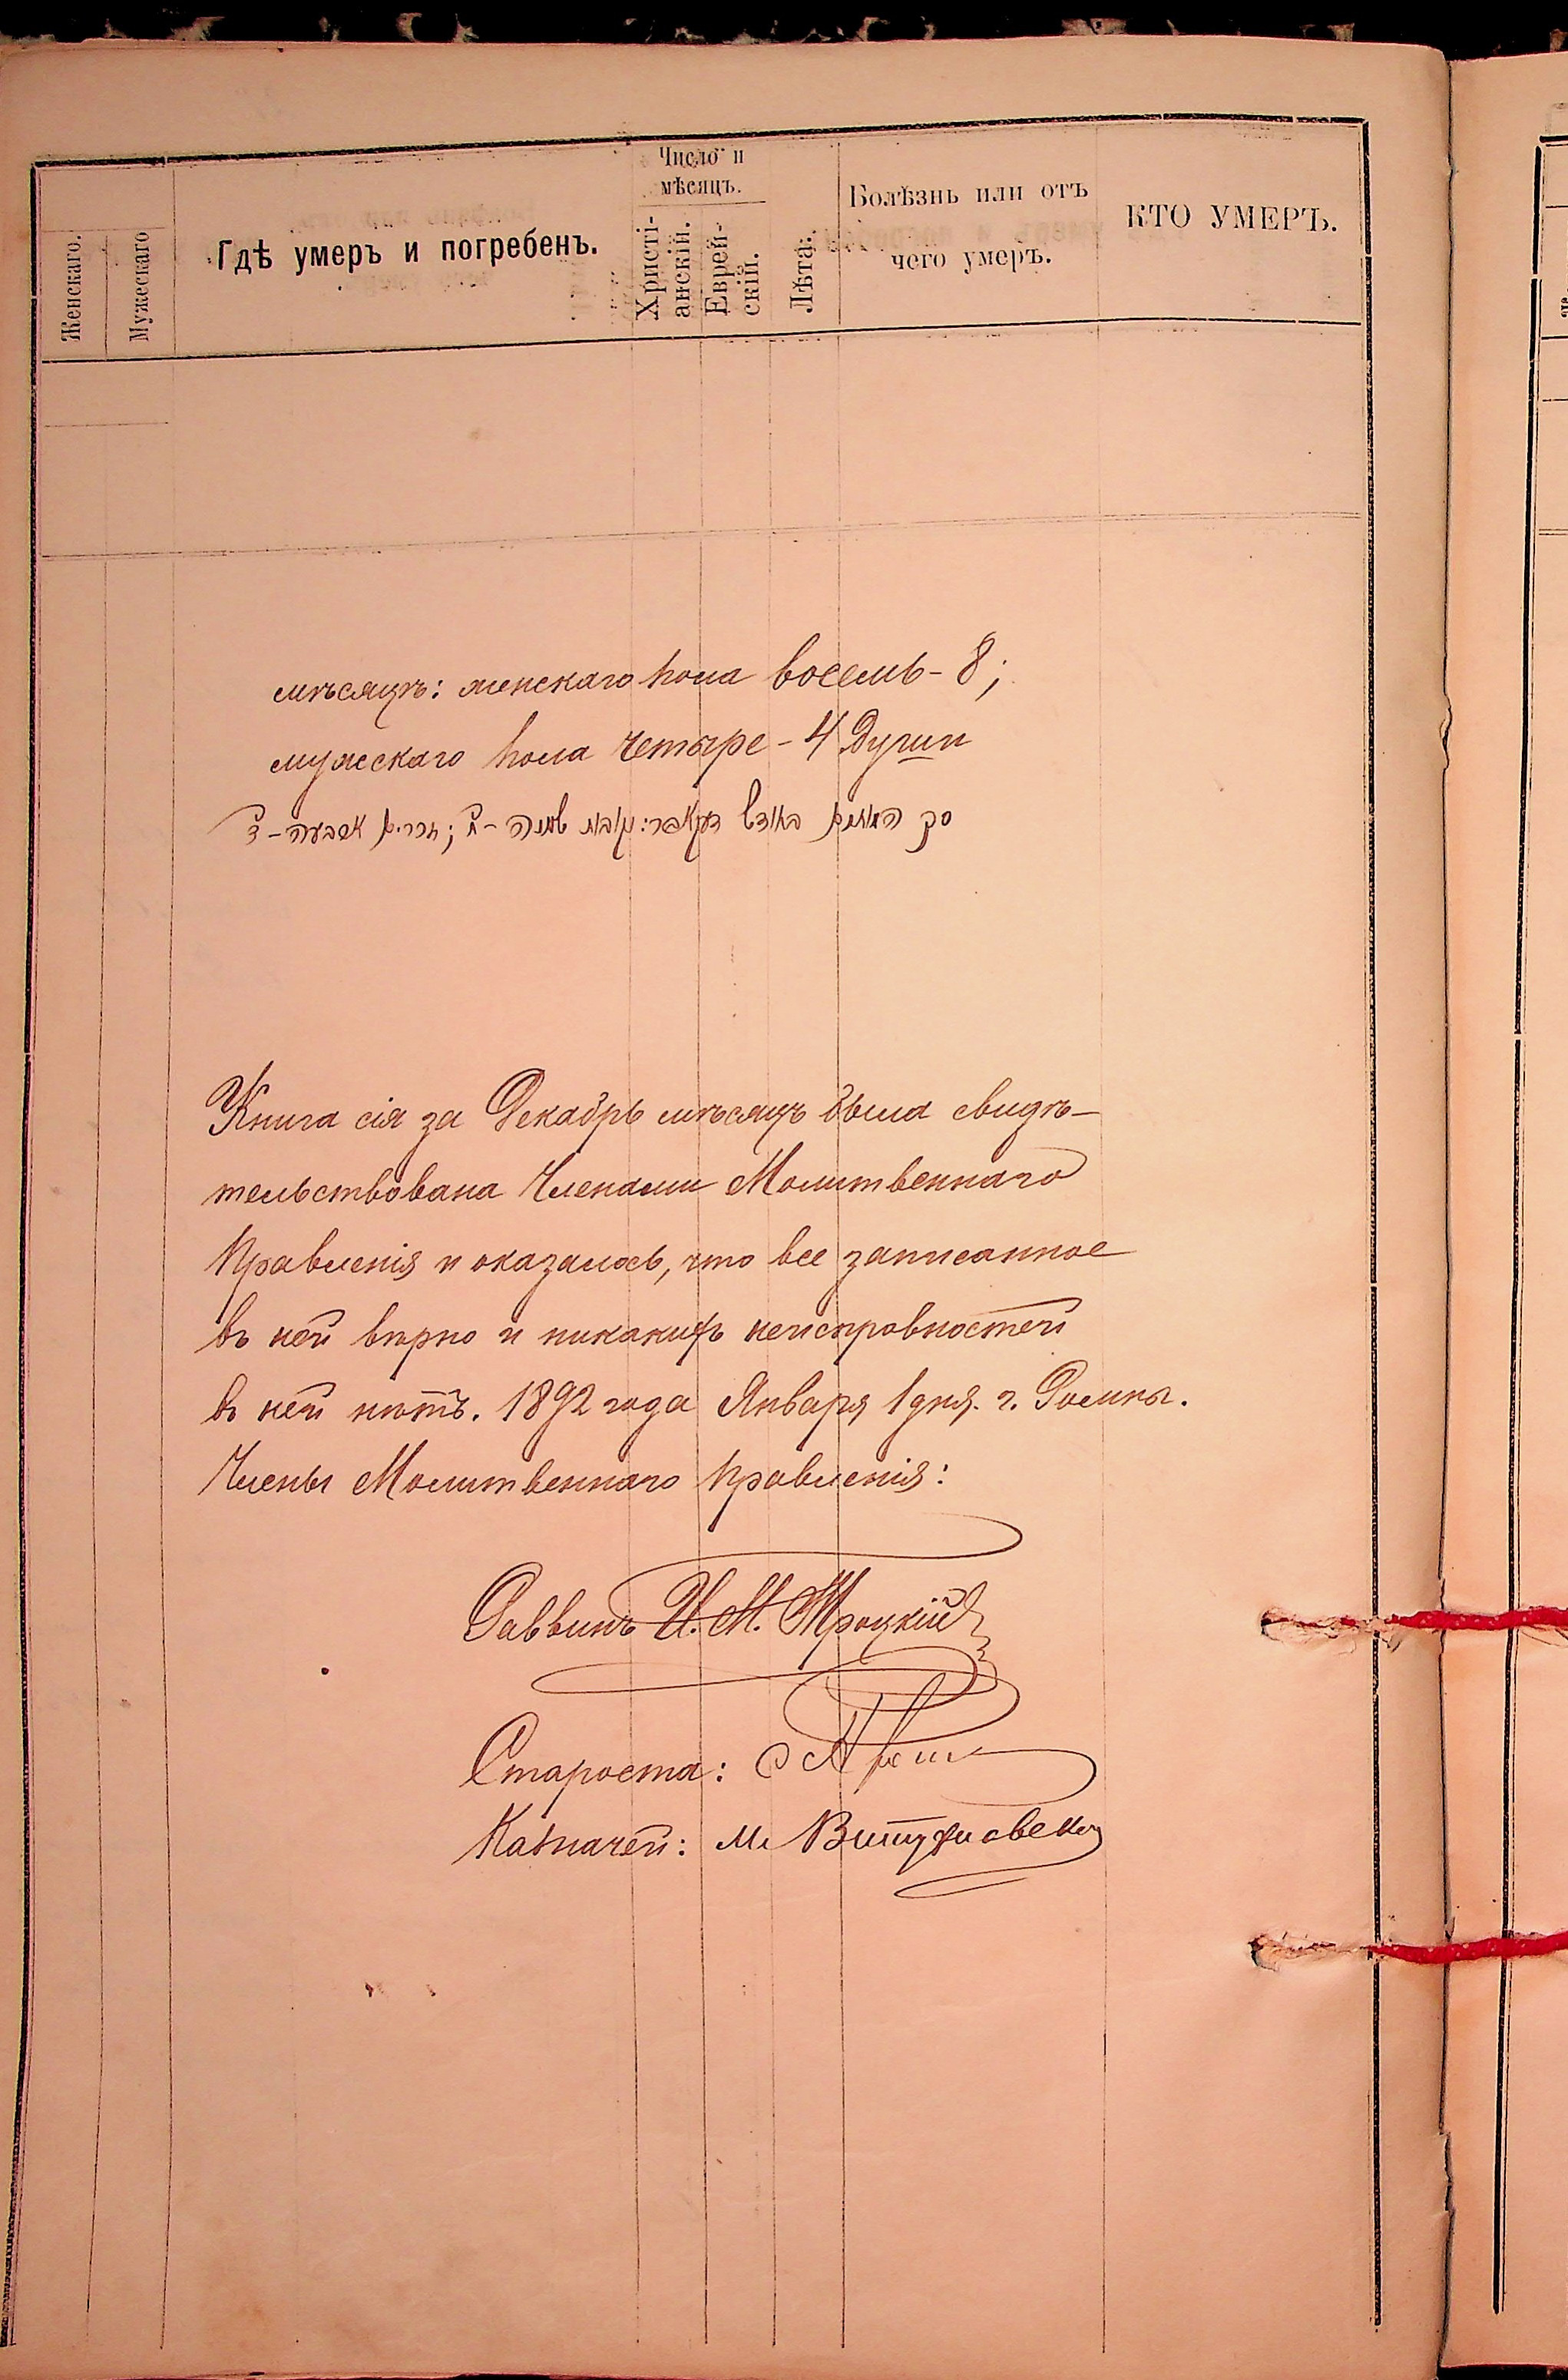 Женскаго.
Мужескаго
Гдѣ умеръ и погребенъ.
Число и
мѣсяцъ.
Христі-
анскій.
Еврей-
скій.
Лѣта.
Болѣзнь или отъ
чего умеръ.
КТО УМЕРЪ.
мѣсяцъ: женскаго пола восемь - 8;
мужескаго пола четыре - 4 души
סך המתים בחודש דעקאבר: נקבות שמנה - ח; זכרים ארבעה - ד
Книга сія за Декабрь мѣсяцъ была свидѣ-
тельствована Членами Молитвеннаго
Правленія и оказалось, что все записанное
въ ней вѣрно и никакихъ неисправностей
въ ней нѣтъ. 1892 года Января 1 дня. г. Ромны.
Члены Молитвеннаго Правленія:
Раввинъ И. М. Троцкій
Староста:
Казначей: М